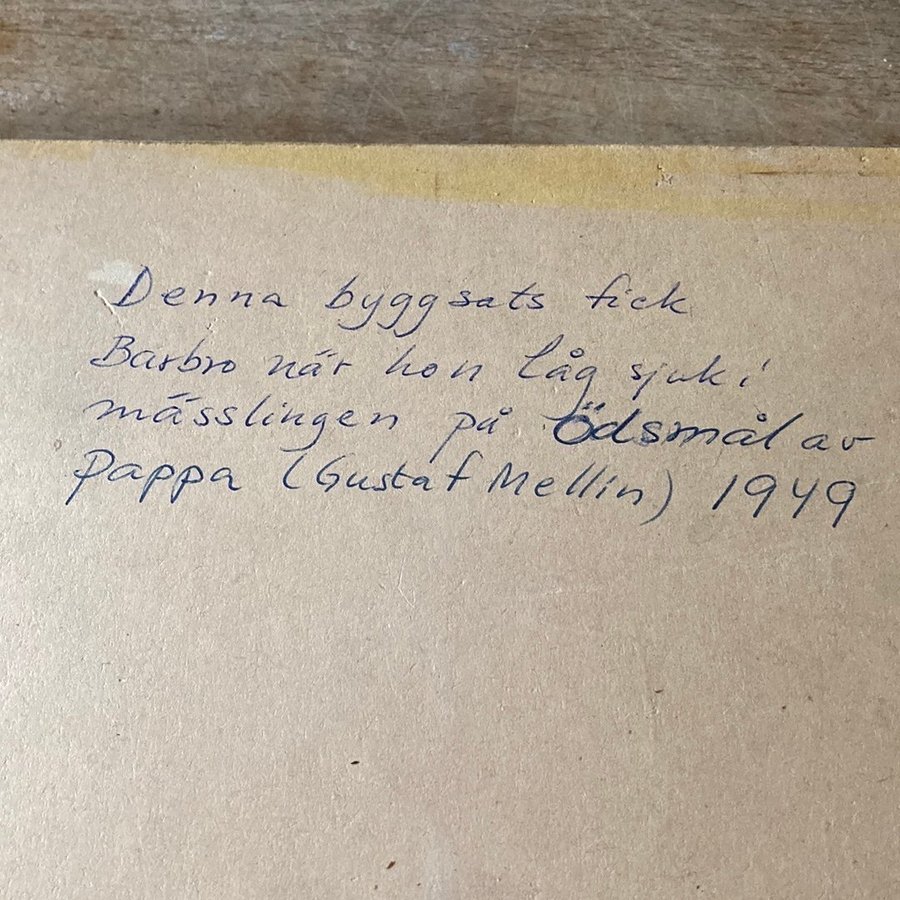 Denna byggsats fick
Barbro när hon låg sjuk i
mässlingen på Ödsmål av
pappa (Gustaf Mellin) 1949